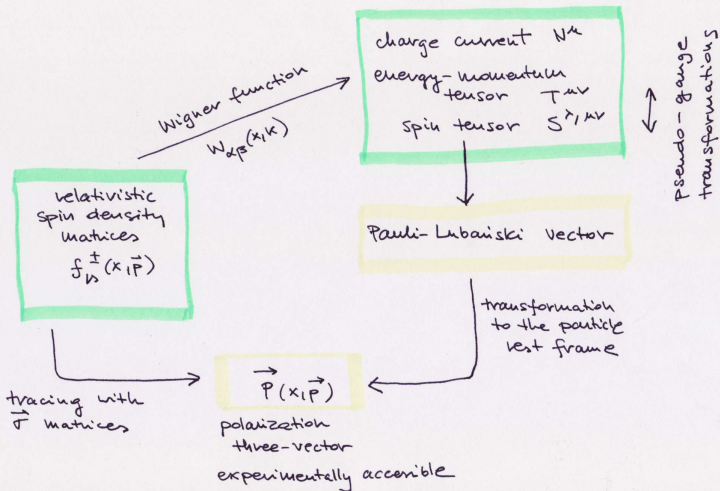 charge current N^μ
energy-momentum
tensor T^μν
spin tensor S^λ,μν
pseudo-gauge
transformations
Wigner function
W_αβ(x,k)
relativistic
spin density
matrices
f^±_rs(x,p⃗)
Pauli-Lubański vector
transformation
to the particle
rest frame
tracing with
σ⃗ matrices
P⃗(x,p⃗)
polarization
three-vector
experimentally accessible